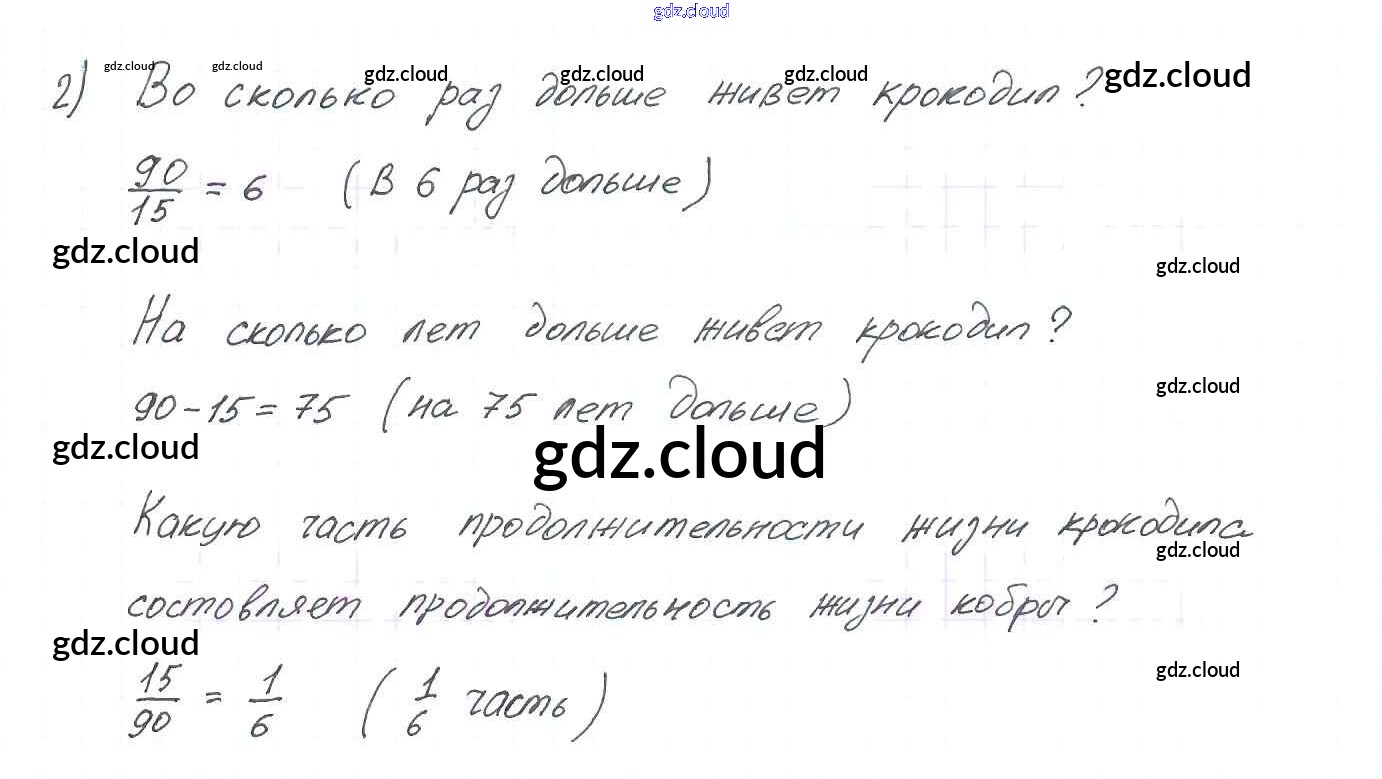 gdz.cloud
2) Во сколько раз дольше живет крокодил?
gdz.cloud gdz.cloud gdz.cloud gdz.cloud gdz.cloud gdz.cloud
90/15 = 6 (в 6 раз дольше)
gdz.cloud
gdz.cloud
На сколько лет дольше живет крокодил?
gdz.cloud
90 - 15 = 75 (на 75 лет дольше)
gdz.cloud gdz.cloud
Какую часть продолжительности жизни крокодила
gdz.cloud
составляет продолжительность жизни кобры?
gdz.cloud
gdz.cloud
15/90 = 1/6 (1/6 часть)